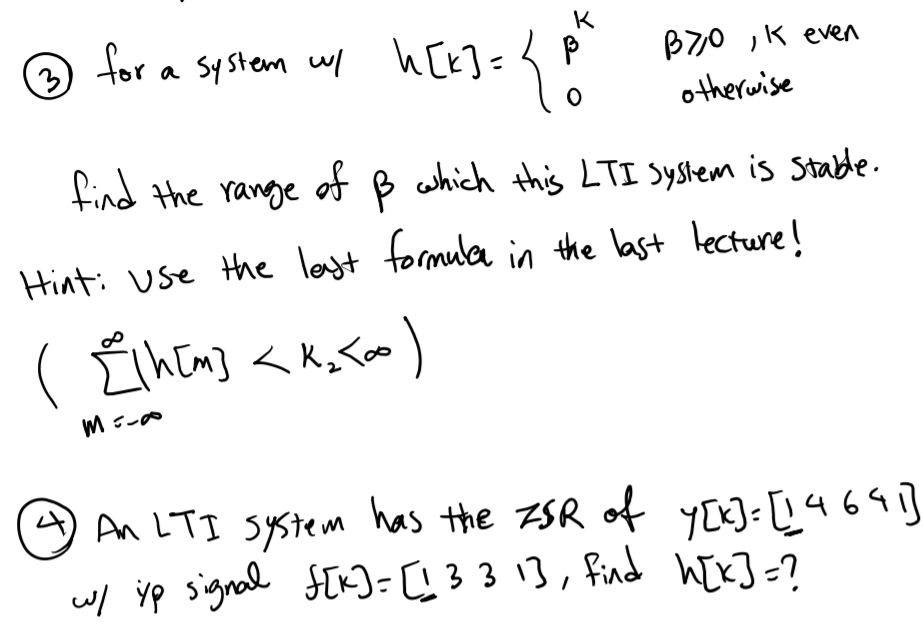 ③ for a system w/ h[k] = { β^K β⩾0 , K even
0 otherwise
find the range of β which this LTI system is stable.
Hint: Use the last formula in the last lecture!
( ∑_{m=-∞}^{∞} |h[m] < K₂ < ∞ )
④ An LTI system has the ZSR of y[k]=[1 4 6 4 1]
w/ i/p signal f[k]=[1 3 3 1], find h[k]=?